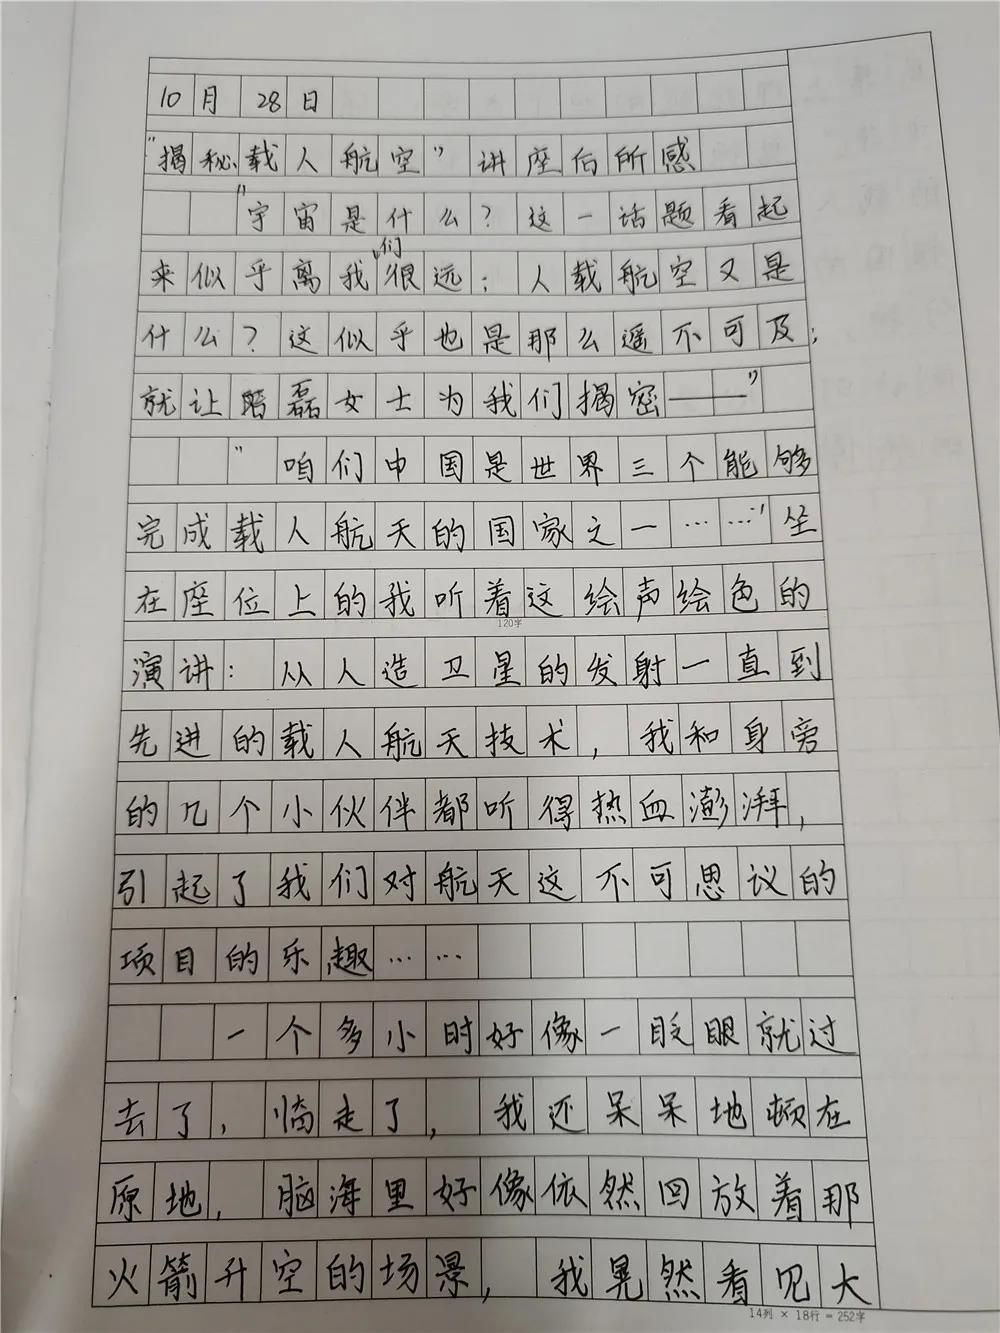 10月28日
"揭秘载人航空"讲座后所感
"宇宙是什么？这一话题看起
来似乎离我们很远；人载航空又是
什么？这似乎也是那么遥不可及；
就让磊女士为我们揭密——"
"咱们中国是世界三个能够
完成载人航天的国家之一……"坐
在座位上的我听着这绘声绘色的
120字
演讲：从人造卫星的发射一直到
先进的载人航天技术，我和身旁
的几个小伙伴都听得热血澎湃，
引起了我们对航天这不可思议的
项目的乐趣……
一个多小时好像一眨眼就过
去了，临走了，我还呆呆地顿在
原地，脑海里好像依然回放着那
火箭升空的场景，我晃然看见大
14列 × 18行 = 252字